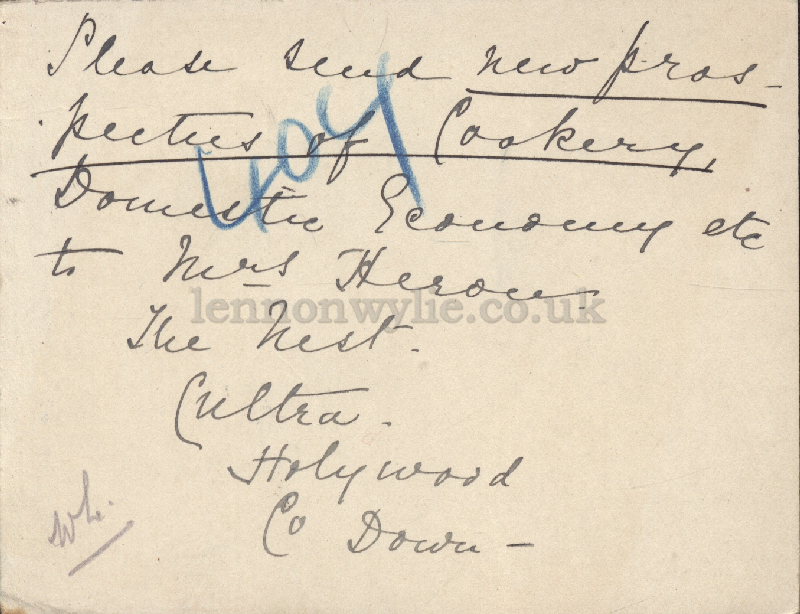 Please send new pros-
pectus of Cookery,
Domestic Economy etc
to Mrs Heron
lennonwylie.co.uk
The Nest.
Cultra.
Holywood
Co Down -